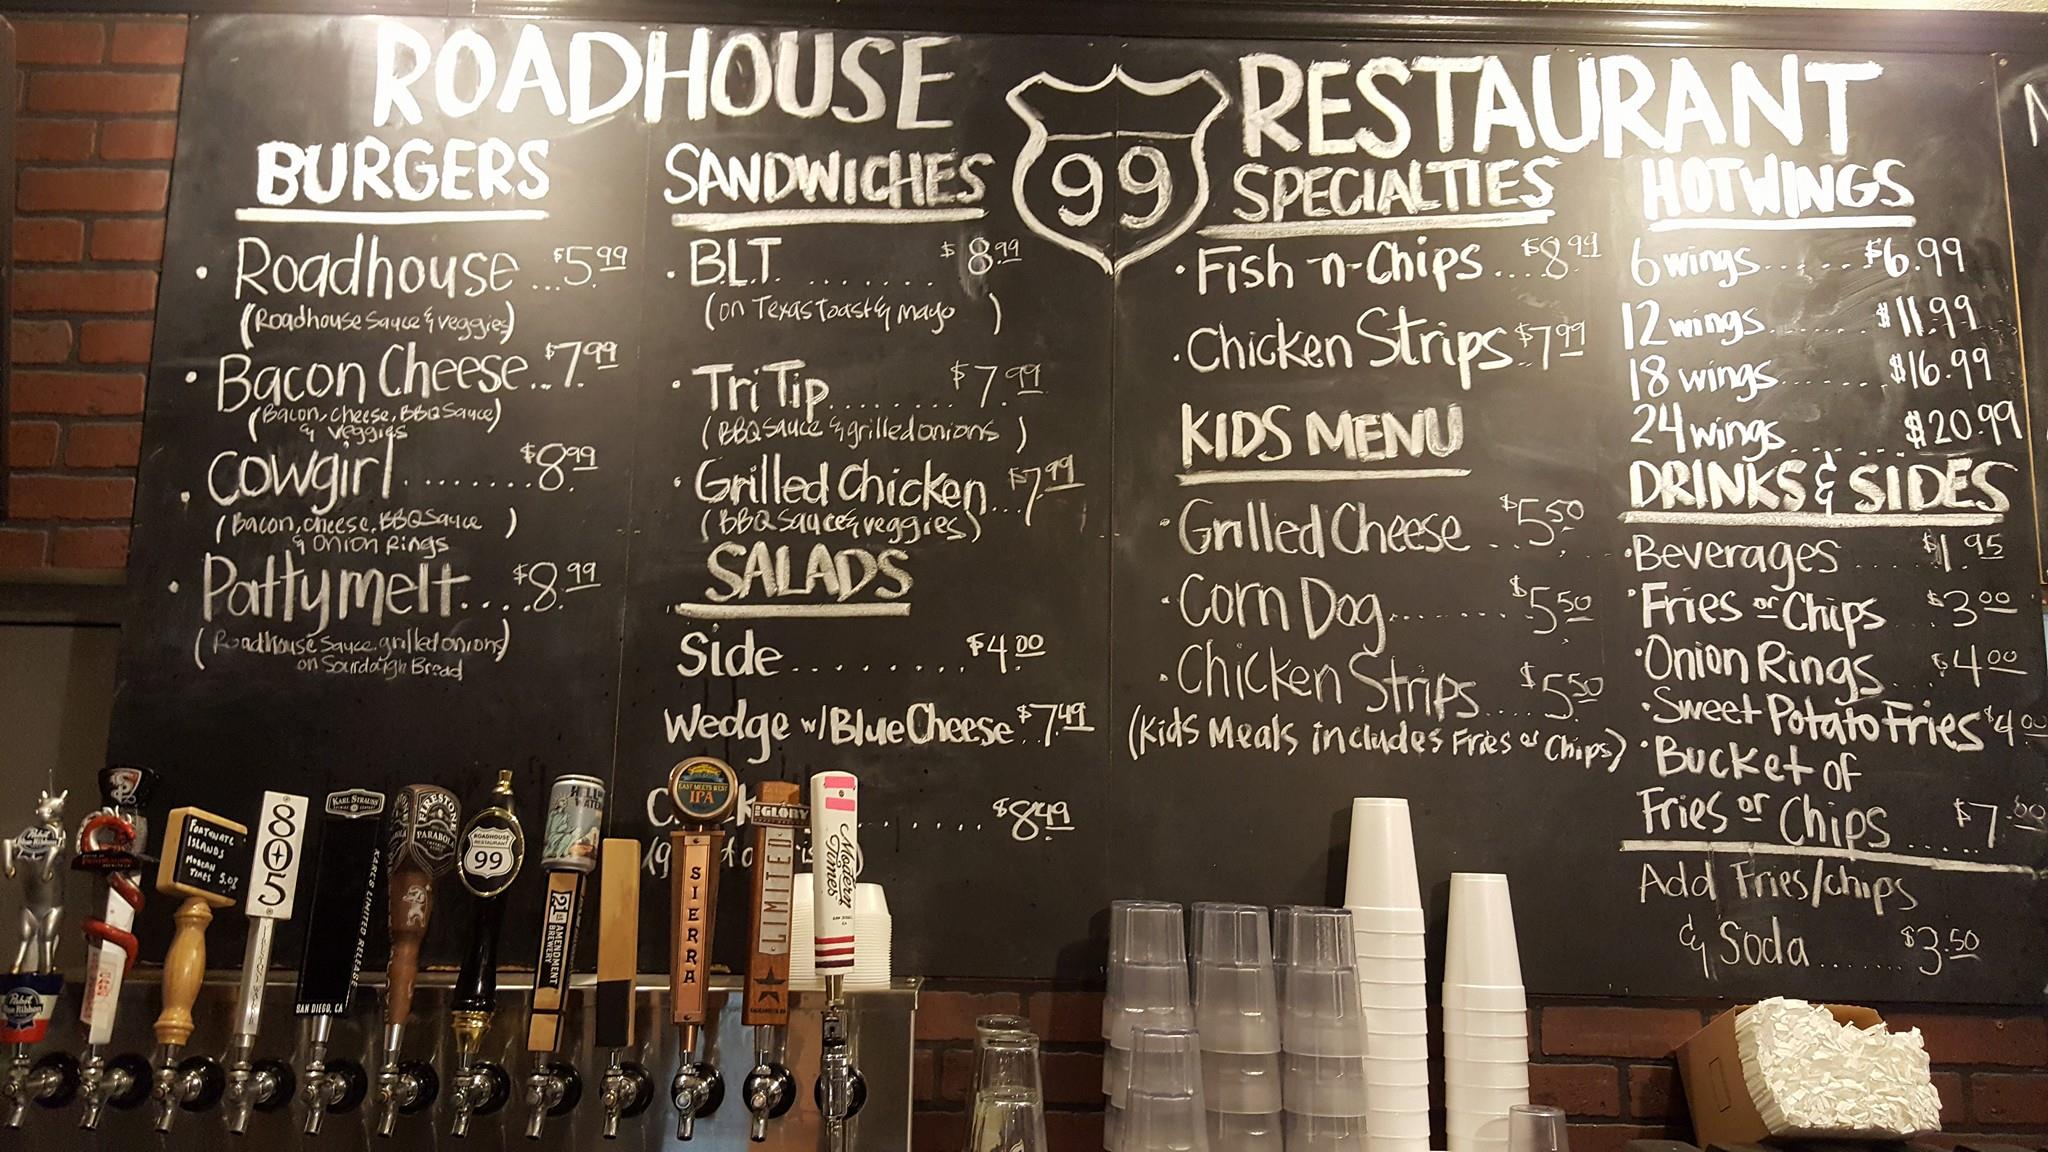 ROADHOUSE 99 RESTAURANT
BURGERS
· Roadhouse ... $5.99
(Roadhouse Sauce & veggies)
· Bacon Cheese... $7.99
(Bacon, cheese, BBQ Sauce
& veggies)
· Cowgirl ....... $8.99
(Bacon, cheese, BBQ Sauce
& Onion Rings)
· Pattymelt.... $8.99
(Roadhouse Sauce, grilled onions)
on Sourdough Bread
SANDWICHES
· B.L.T. ....... $8.99
(on Texas Toast & mayo)
· Tri Tip........ $7.99
(BBQ Sauce & grilled onions)
· Grilled Chicken.. $7.99
(BBQ Sauce & veggies)
SALADS
Side......... $4.00
Wedge w/ Blue Cheese $7.49
$8.49
SPECIALTIES
· Fish-n-Chips.... $8.99
· Chicken Strips $7.99
KIDS MENU
· Grilled Cheese .... $5.50
· Corn Dog....... $5.50
· Chicken Strips.... $5.50
(Kids Meals includes Fries or Chips)
HOTWINGS
6 wings...... $6.99
12 wings...... $11.99
18 wings...... $16.99
24 wings...... $20.99
DRINKS & SIDES
· Beverages .... $1.95
· Fries or Chips $3.00
· Onion Rings... $4.00
· Sweet Potato Fries $4.00
· Bucket of
Fries or Chips ..... $7.00
Add Fries/chips
& Soda ....... $3.50
Pabst
Blue Ribbon
Pabst
Blue Ribbon
FORTUNATE
ISLANDS
MODERN
TIMES 5.0%
805
KARL STRAUSS
KARL'S LIMITED RELEASE
SAN DIEGO, CA
FIRESTONE
PARABOLA
ROADHOUSE
RESTAURANT
99
21ST
AMENDMENT
BREWERY
EAST MEETS WEST
IPA
SIERRA
GLORY
LIMITED
Modern
Times